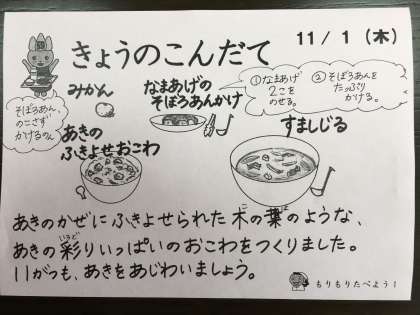 きょうのこんだて
11/1（木）
みかん
なまあげの
そぼろあんかけ
①なまあげ
2こを
のせる。
②そぼろあんを
たっぷり
かける。
そぼろあん、
のこさず
かけるのん
あきの
ふきよせおこわ
すましじる
あきのかぜにふきよせられた木の葉のような、
あきの彩りいっぱいのおこわをつくりました。
11がつも、あきをあじわいましょう。
もりもりたべよう！